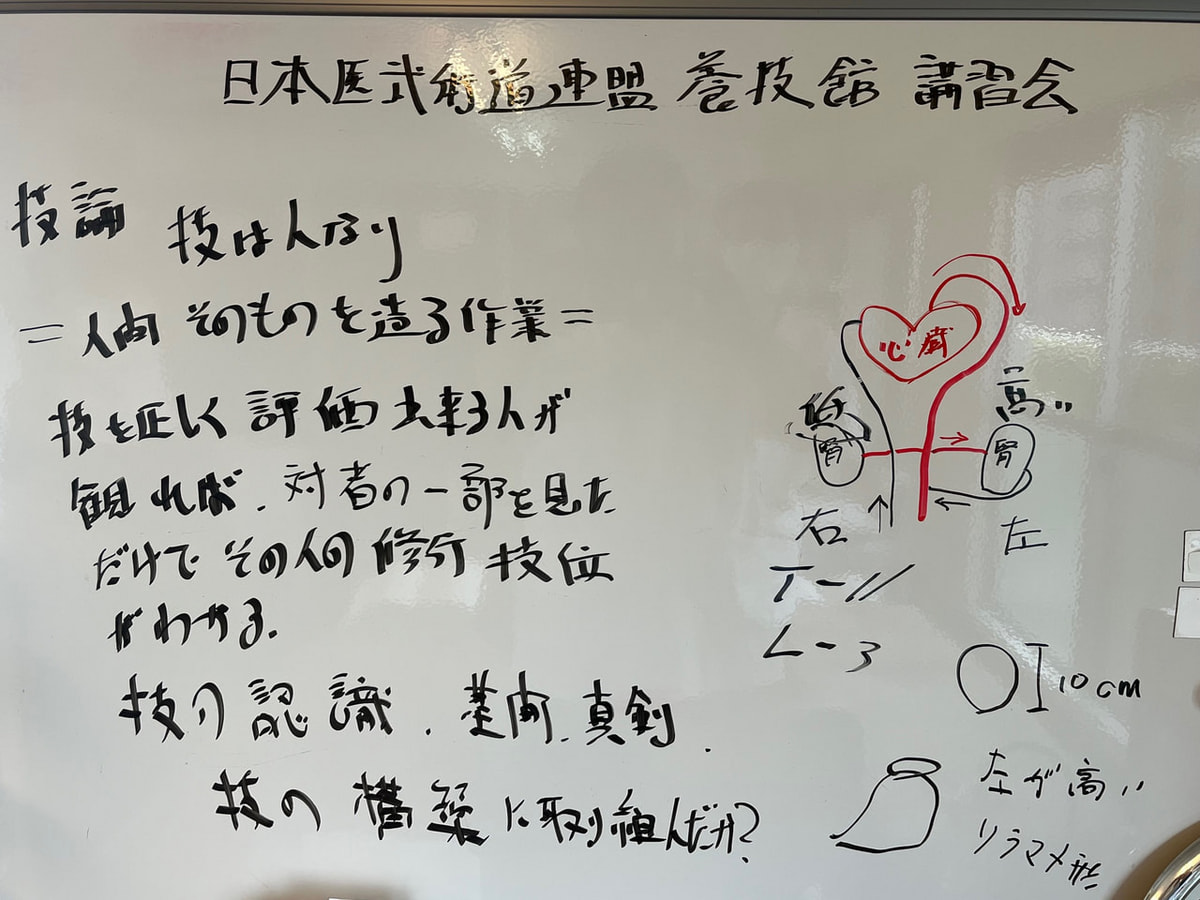 日本医武術道連盟 養技館 講習会
技論 技は人なり
=人間 そのものを造る作業=
技を正しく評価出来る人が
観れば、対者の一部を見た
だけでその人の修行 技位
がわかる.
技の認識、真剣、
技の構築に取り組んだか?
心臓
低 高い
腎 腎
右 左
T-11
L-3
10cm
左が高い
ソラマメ形